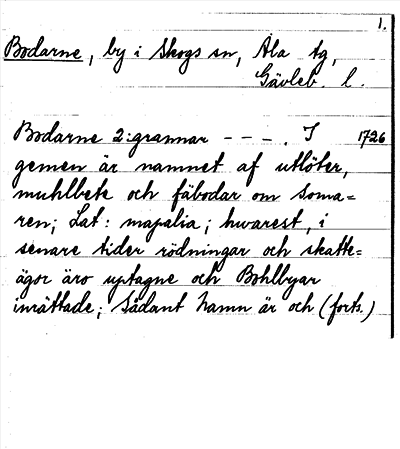 1.
Bodarne, by i Skogs sn, Ala tg,
Gävleb. l.
Bodarne 2:grannar - - - . I 1726
gemen är namnet af utlöter,
muhlbete och fäbodar om Soma=
ren; Lat: mapalia; hwarest, i
senare tider rödningar och skatte=
ägor äro uptagne och Bohlbyar
inrättade; Sådant hamn är och (forts.)